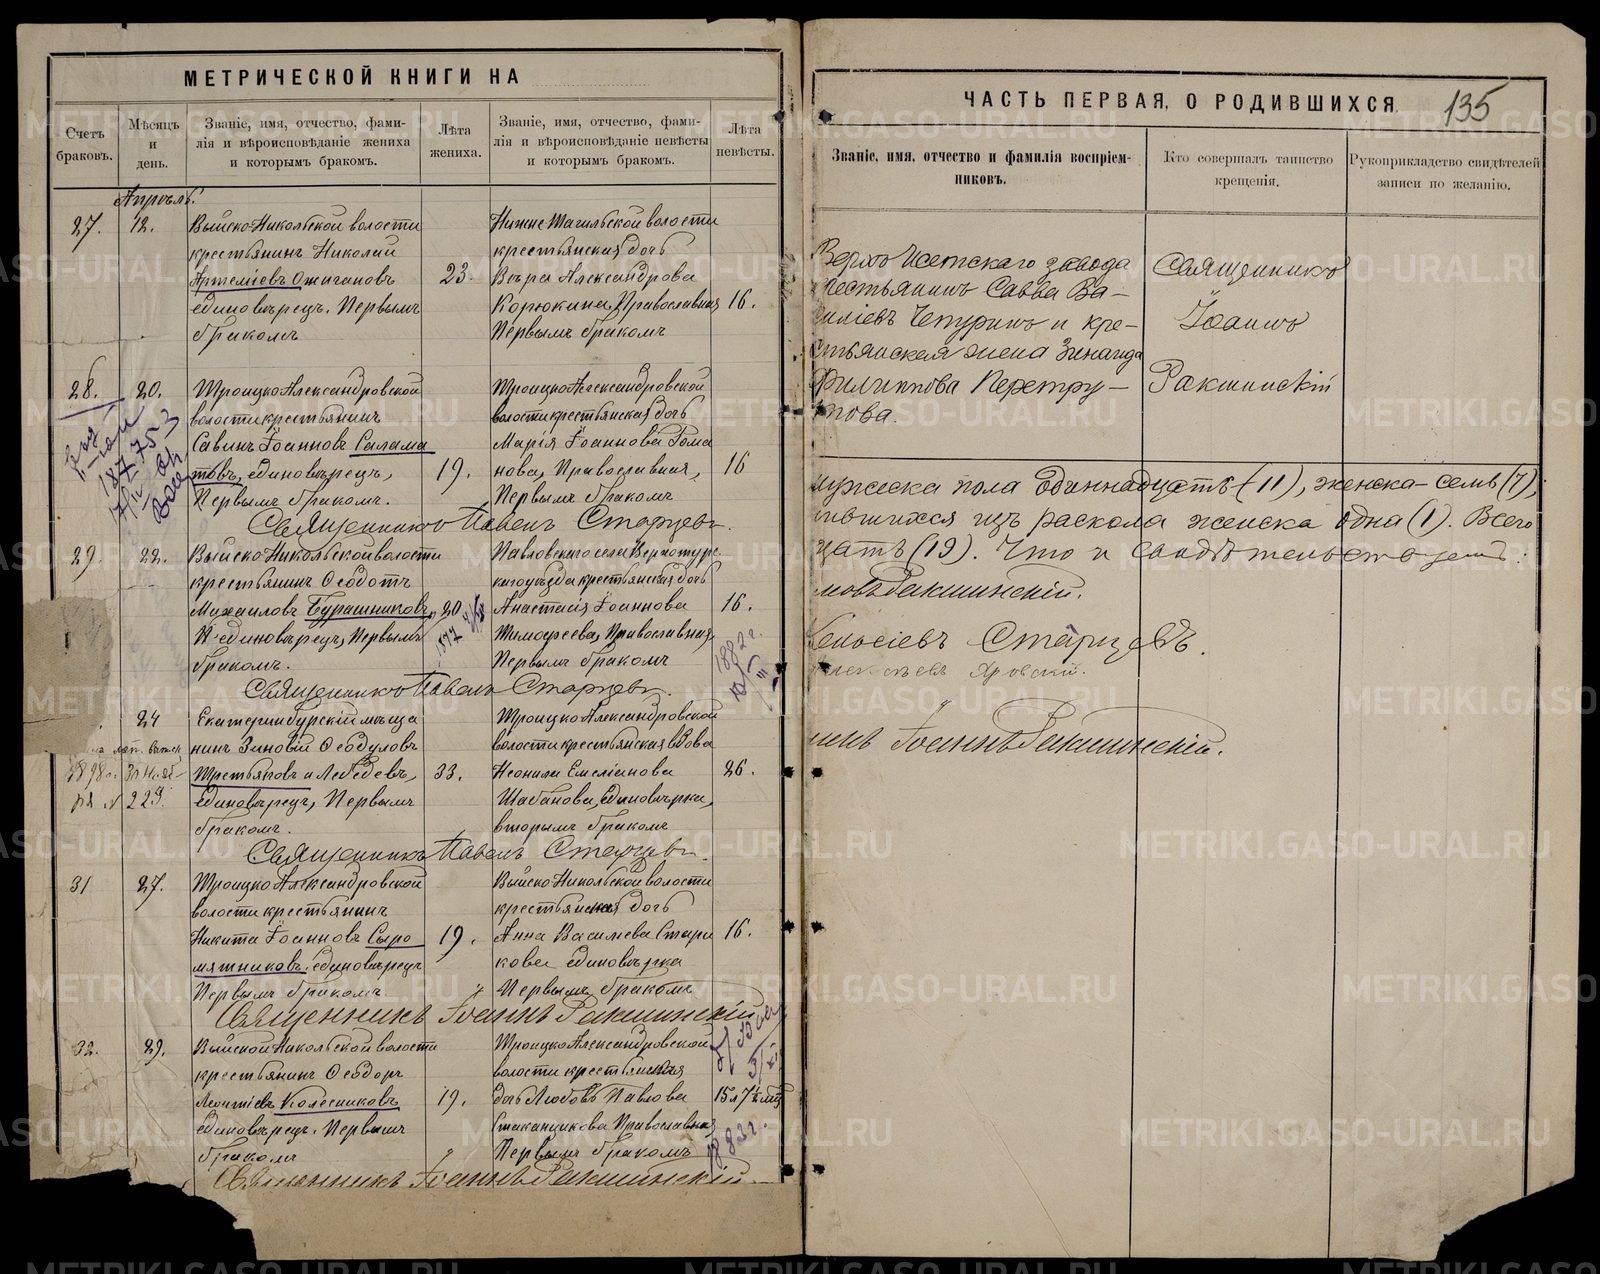 МЕТРИЧЕСКОЙ КНИГИ НА
Счетъ браковъ.
Мѣсяцъ и день.
Званіе, имя, отчество, фами-
лія и вѣроисповѣданіе жениха
и которымъ бракомъ.
Лѣта жениха.
Званіе, имя, отчество, фами-
лія и вѣроисповѣданіе невѣсты
и которымъ бракомъ.
Лѣта невѣсты.
Апрѣль.
27. 12.
Выйско-Никольской волости
крестьянинъ Николай
Артеміевъ Ожигановъ
единовѣрецъ. Первымъ
бракомъ
23.
Нижне Тагильской волости
крестьянская дочь
Вѣра Александрова
Корюкина, Православная
Первымъ бракомъ
16.
28. 20.
Троицко Александровской
волости крестьянинъ
Савинъ Іоанновъ Салама
товъ, единовѣрецъ,
Первымъ бракомъ.
19.
Троицко Александровской
волости крестьянская дочь
Марія Іоаннова Рома
нова, Православная,
Первымъ бракомъ
16
Священникъ Павелъ Старцевъ.
29. 22.
Выйско-Никольской волости
крестьянинъ Ѳеодотъ
Михаиловъ Бурашниковъ,
единовѣрецъ, Первымъ
бракомъ.
20
Павловскаго села Верхотурс
каго уѣзда крестьянская дочь
Анастасія Іоаннова
Тимофеева, Православная,
Первымъ бракомъ
16.
1882 г.
Священникъ Павелъ Старцевъ.
24
Екатеринбургскій мѣща
нинъ Зиновій Ѳеодуловъ
Третьяковъ и Лебедевъ,
единовѣрецъ, Первымъ
бракомъ.
33.
Троицко Александровской
волости крестьянская вдова
Неонила Емеліанова
Шабанова, единовѣрка,
вторымъ бракомъ
26.
1898
№ 229
Священникъ Павелъ Старцевъ.
31 27.
Троицко Александровской
волости крестьянинъ
Никита Іоанновъ Сыро
мятниковъ, единовѣрецъ
Первымъ бракомъ
19.
Выйско Никольской волости
крестьянская дочь
Анна Васильева Стари
кова единовѣрка
Первымъ бракомъ
16.
Священникъ Іоаннъ Ракшинскій
32. 29.
Выйской Никольской волости
крестьянинъ Ѳеодоръ
Леонтіевъ Колесниковъ
единовѣрецъ. Первымъ
бракомъ
19.
Троицко Александровской
волости крестьянская
дочь Любовь Павлова
Стаканщикова Православная
Первымъ бракомъ
1883 г.
Священникъ Іоаннъ Ракшинскій
ЧАСТЬ ПЕРВАЯ, О РОДИВШИХСЯ.
135
Званіе, имя, отчество и фамилія воспріем-
никовъ.
Кто совершалъ таинство
крещенія.
Рукоприкладство свидѣтелей
записи по желанію.
Верхъ Исетскаго завода
крестьянинъ Савва Ва-
силіевъ Чепуринъ и кре-
стьянская жена Зинаида
Филиппова Перетру-
това.
Священникъ
Іоаннъ
Ракшинскій
мужеска пола одиннадцать (11), женска - семь (7),
изъ раскола женска одна (1). Всего
цать (19). Что и свидѣтельствуетъ:
Ракшинскій.
Старцевъ.
Яровскій.
Іоаннъ Ракшинскій.
METRIKI.GASO-URAL.RU